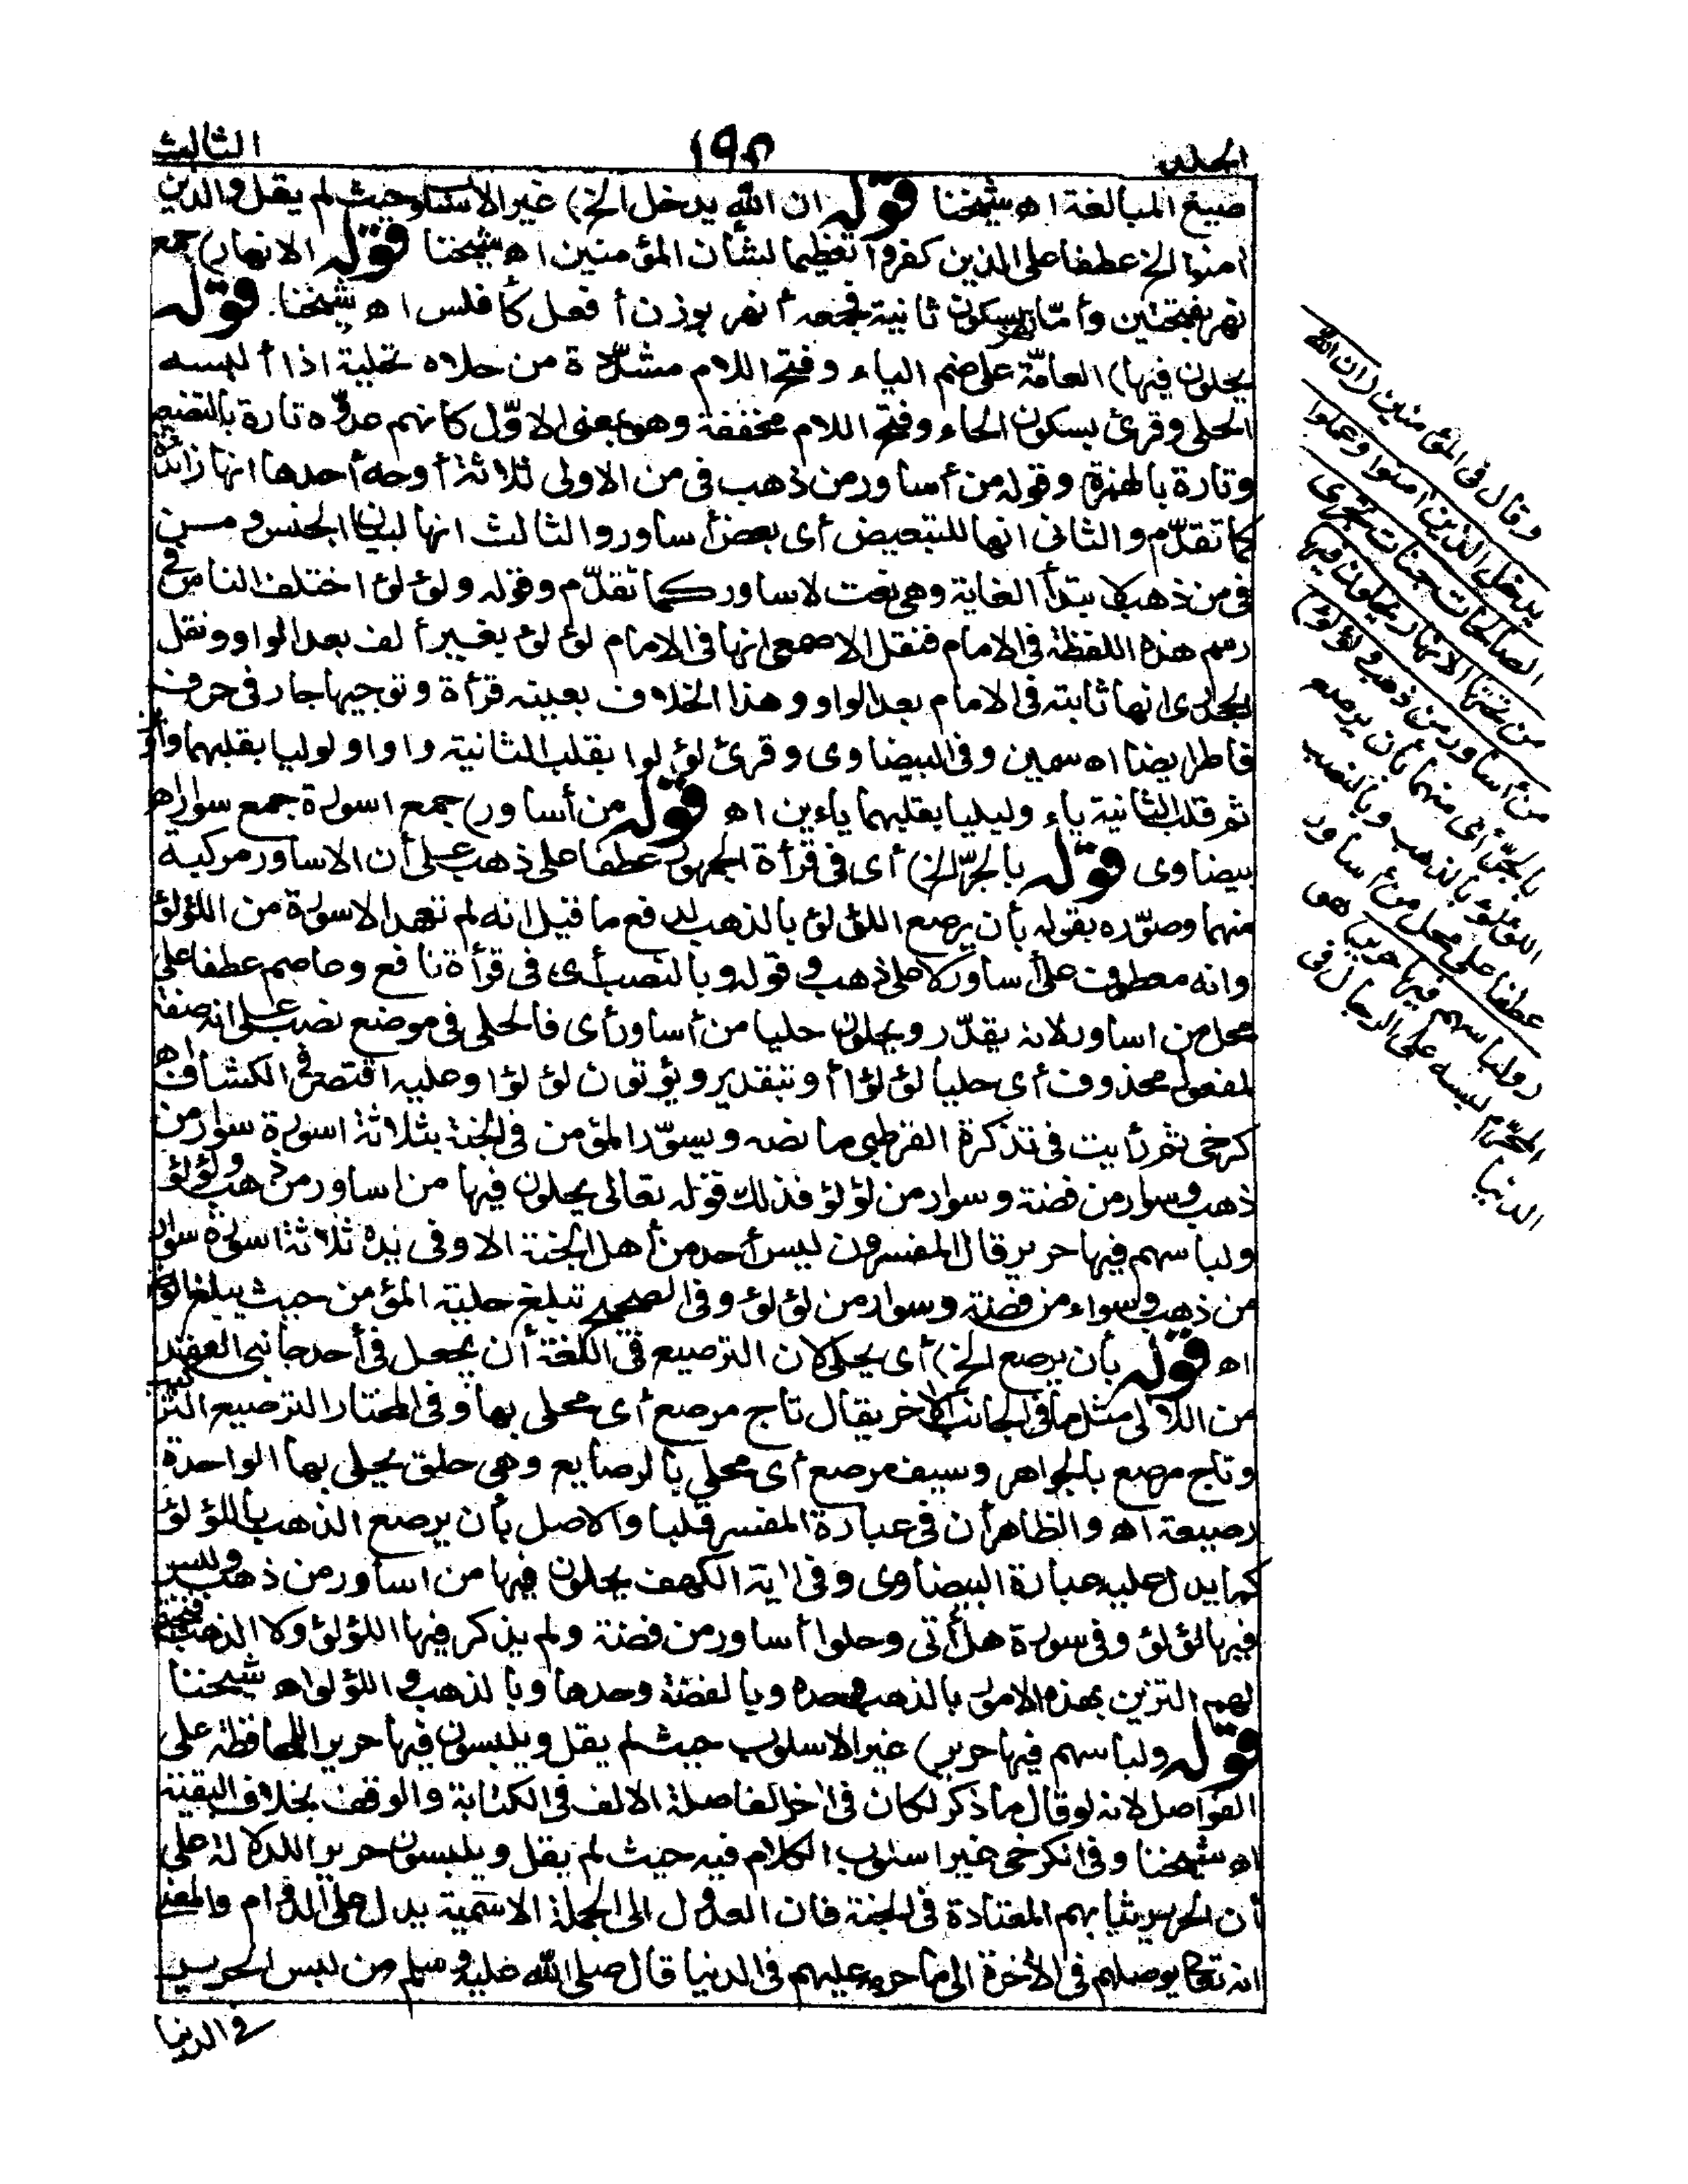 الجلد ١٩٢ الثالث
صيغ المبالغة اه شيخنا قوله ان الله يدخل الخ) غير الاسلوب حيث لم يقل والذين
امنوا الخ عطفا على الذين كفروا تعظيما لشأن المؤمنين اه شيخنا قوله الانهار) جمع
نهر بفتحتين وأمّا نهر بسكون ثانية فجمعه أنهر بوزن أفعل كأفلس اه شيخنا. قوله
يحلون فيها) العامّة على ضم الياء وفتح اللام مشدّدة من حلاه تحلية اذا ألبسه
الحلى وقرئ بسكون الحاء وفتح اللام مخففة وهو بمعنى الاوّل كانهم عدّوه تارة بالتضعيف
وتارة بالهمزة وقوله من أساور من ذهب فى من الاولى ثلاثة أوجه أحدها انها زائدة
كما تقدّم والثانى انها للتبعيض أى بعض أساور والثالث انها لبيان الجنس ومن
فى من ذهب لابتدأ الغاية وهى نعت لاساور كما تقدّم وقوله ولؤلؤا اختلف الناس فى
رسم هذه اللفظة فى الامام فنقل الاصمعى انها فى الامام لؤلؤ بغير ألف بعد الواو ونقل
الجحدرى انها ثابته فى الامام بعد الواو وهذا الخلاف بعينه قرأة وتوجيها جار فى حرف
فاطر ايضا اه سمين وفى البيضاوى وقرئ لؤلوا بقلب الثانية واوا ولوليا بقلبهما واوين
ثم قلب الثانية ياء وليليا بقلبهما ياءين اه قوله من أساور) جمع اسورة جمع سوار اه
بيضاوى قوله بالجرّ الخ) أى فى قرأة الجمهور عطفا على ذهب على أن الاساور مركبة
منهما وصوّره بقوله بأن يرصع اللؤلؤ بالذهب لدفع ما قيل انه لم تعهد الاسورة من اللؤلؤ
وانه معطوف على أساور لا على ذهب وقوله وبالنصب أى فى قرأة نافع وعاصم عطفا على
محل من اساور لانه يقدّر ويحلون حليا من أساور أى فالحلى فى موضع نصب على انه صفة
لمفعول محذوف أى حليا لؤلؤا أو بتقدير ويؤتون لؤلؤا وعليه اقتصر فى الكشاف اه
كرخى ثم رأيت فى تذكرة القرطبى ما نصه ويسوّر المؤمن فى الجنة بثلاثة اسورة سوار من
ذهب وسوار من فضة وسوار من لؤلؤ فذلك قوله تعالى يحلون فيها من اساور من ذهب ولؤلؤ
ولباسهم فيها حرير قال المفسرون ليس أحد من أهل الجنة الا وفى يده ثلاثة اسورة سوار
من ذهب وسواء من فضة وسوار من لؤلؤ وفى الصحيح تبلغ حلية المؤمن حيث يبلغ الوضؤ
اه قوله بأن يرصع الخ) أى يحلى لان الترصيع فى اللغة أن يجعل فى أحد جانبى العقد
من اللآلى مثل ما فى الجانب الاخر يقال تاج مرصع أى محلى بها وفى المختار الترصيع التركيب
وتاج مرصع بالجواهر وسيف مرصع أى محلى بالرصايع وهى حلق يحلى بها الواحدة
رصيعة اه والظاهر أن فى عبارة المفسر قلبا والاصل بأن يرصع الذهب باللؤلؤ
كما يدل عليه عبارة البيضاوى وفى اية الكهف يحلون فيها من اساور من ذهب وليس
فيها لؤلؤ وفى سورة هل أتى وحلوا أساور من فضة ولم يذكر فيها اللؤلؤ ولا الذهب فيجتمع
لهم التزين بهذه الامور بالذهب وحده وبالفضة وحدها وبالذهب واللؤلو اه شيخنا
قوله ولباسهم فيها حرير) غير الاسلوب حيث لم يقل ويلبسون فيها حريرا للمحافظة على
الفواصل لانه لو قال ما ذكر لكان فى اخر الفاصلة الالف فى الكتابة والوقف بخلاف البقية
اه شيخنا وفى الكرخى غير اسلوب الكلام فيه حيث لم يقل ويلبسون حريرا للدلالة على
أن الحرير ثيابهم المعتادة فى الجنة فان العدول الى الجملة الاسمية يدل على الدوام والمعنى
انه تعالى يوصلهم فى الأخرة الى ما حرمه عليهم فى الدنيا قال صلى الله عليه وسلم من لبس الحرير
فى الدنيا
وقال فى المؤمنين (ان الله
يدخل الذين امنوا وعملوا
الصالحات جنات تجرى
من تحتها الانهار يحلون فيها
من أساور من ذهب ولؤلؤ)
بالجرّ أى منهما بأن يرصع
اللؤلؤ بالذهب وبالنصب
عطفا على محل من أساور
(ولباسهم فيها حرير) هو
المحرّم لبسه على الرجال فى
الدنيا